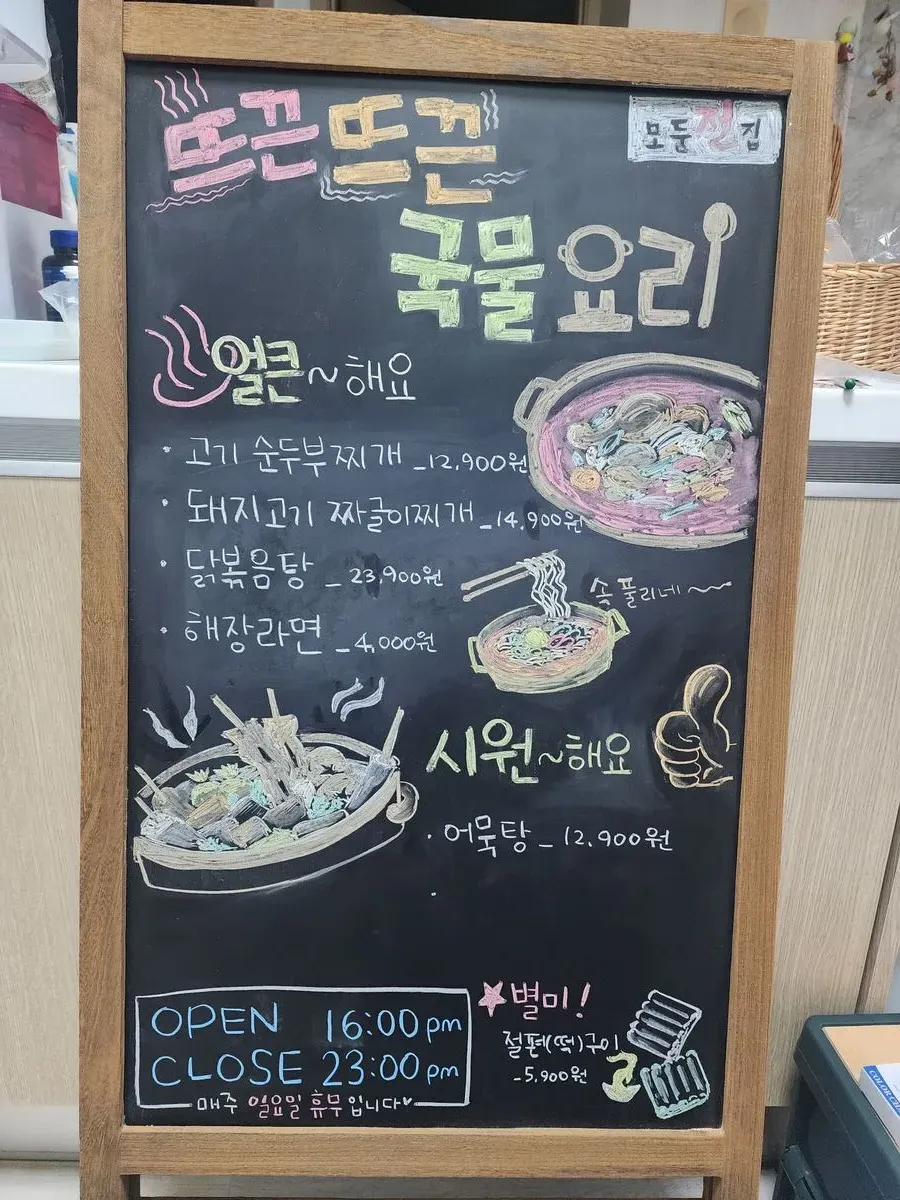 뜨끈 뜨끈
모둠전집
국물 요리
얼큰~해요
· 고기 순두부찌개 _12,900원
· 돼지고기 짜글이찌개 _14,900원
· 닭볶음탕 _ 23,900원
속 풀리네~~
· 해장라면 _4,000원
시원~해요
· 어묵탕 _ 12,900원
·
OPEN 16:00 pm
CLOSE 23:00 pm
매주 일요일 휴무입니다♥
★별미!
절편(떡)구이
-5,900원